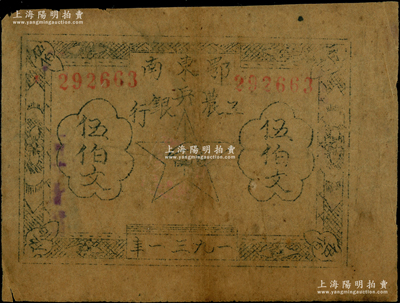 上海 陽明拍賣
www.yangmingauction.com
鄂東南
292663 292663
工農兵銀行
伍伯文 伍伯文
上海 陽明拍賣
www.yangmingauction.com
一九三一年
上海 陽明拍賣
www.yangmingauction.com